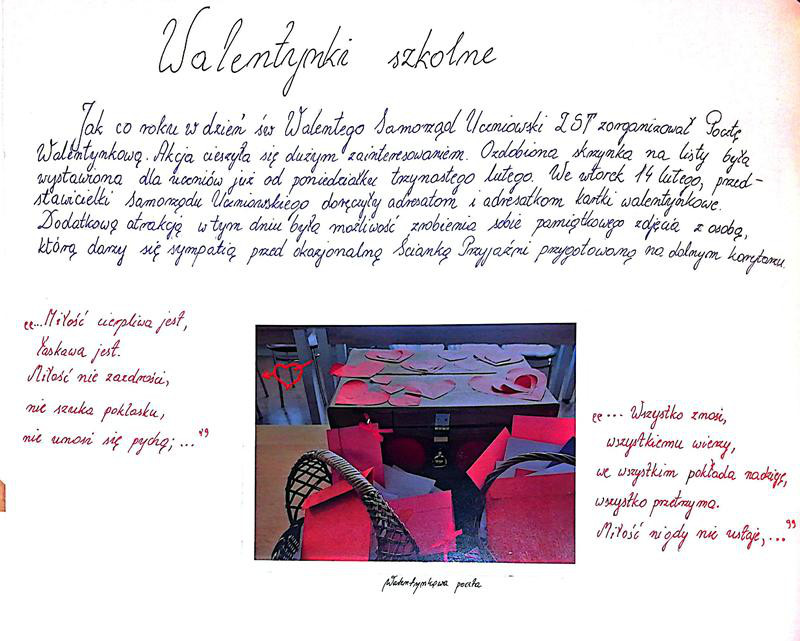 Walentynki szkolne
Jak co roku w dzień św Walentego Samorząd Uczniowski ZST zorganizował Pocztę
Walentynkową. Akcja cieszyła się dużym zainteresowaniem. Ozdobiona skrzynka na listy była
wystawiona dla uczniów już od poniedziałku trzynastego lutego. We wtorek 14 lutego, przed-
stawicielki Samorządu Uczniowskiego doręczyły adresatom i adresatkom kartki walentynkowe.
Dodatkową atrakcją w tym dniu była możliwość zrobienia sobie pamiątkowego zdjęcia z osobą,
którą darzy się sympatią przed okazjonalną Ścianką Przyjaźni przygotowaną na dolnym korytarzu.
„...Miłość cierpliwa jest,
łaskawa jest.
Miłość nie zazdrości,
nie szuka poklasku,
nie unosi się pychą; ..."
„... Wszystko znosi,
wszystkiemu wierzy,
we wszystkim pokłada nadzieję,
wszystko przetrzyma.
Miłość nigdy nie ustaje,..."
Walentynkowa poczta